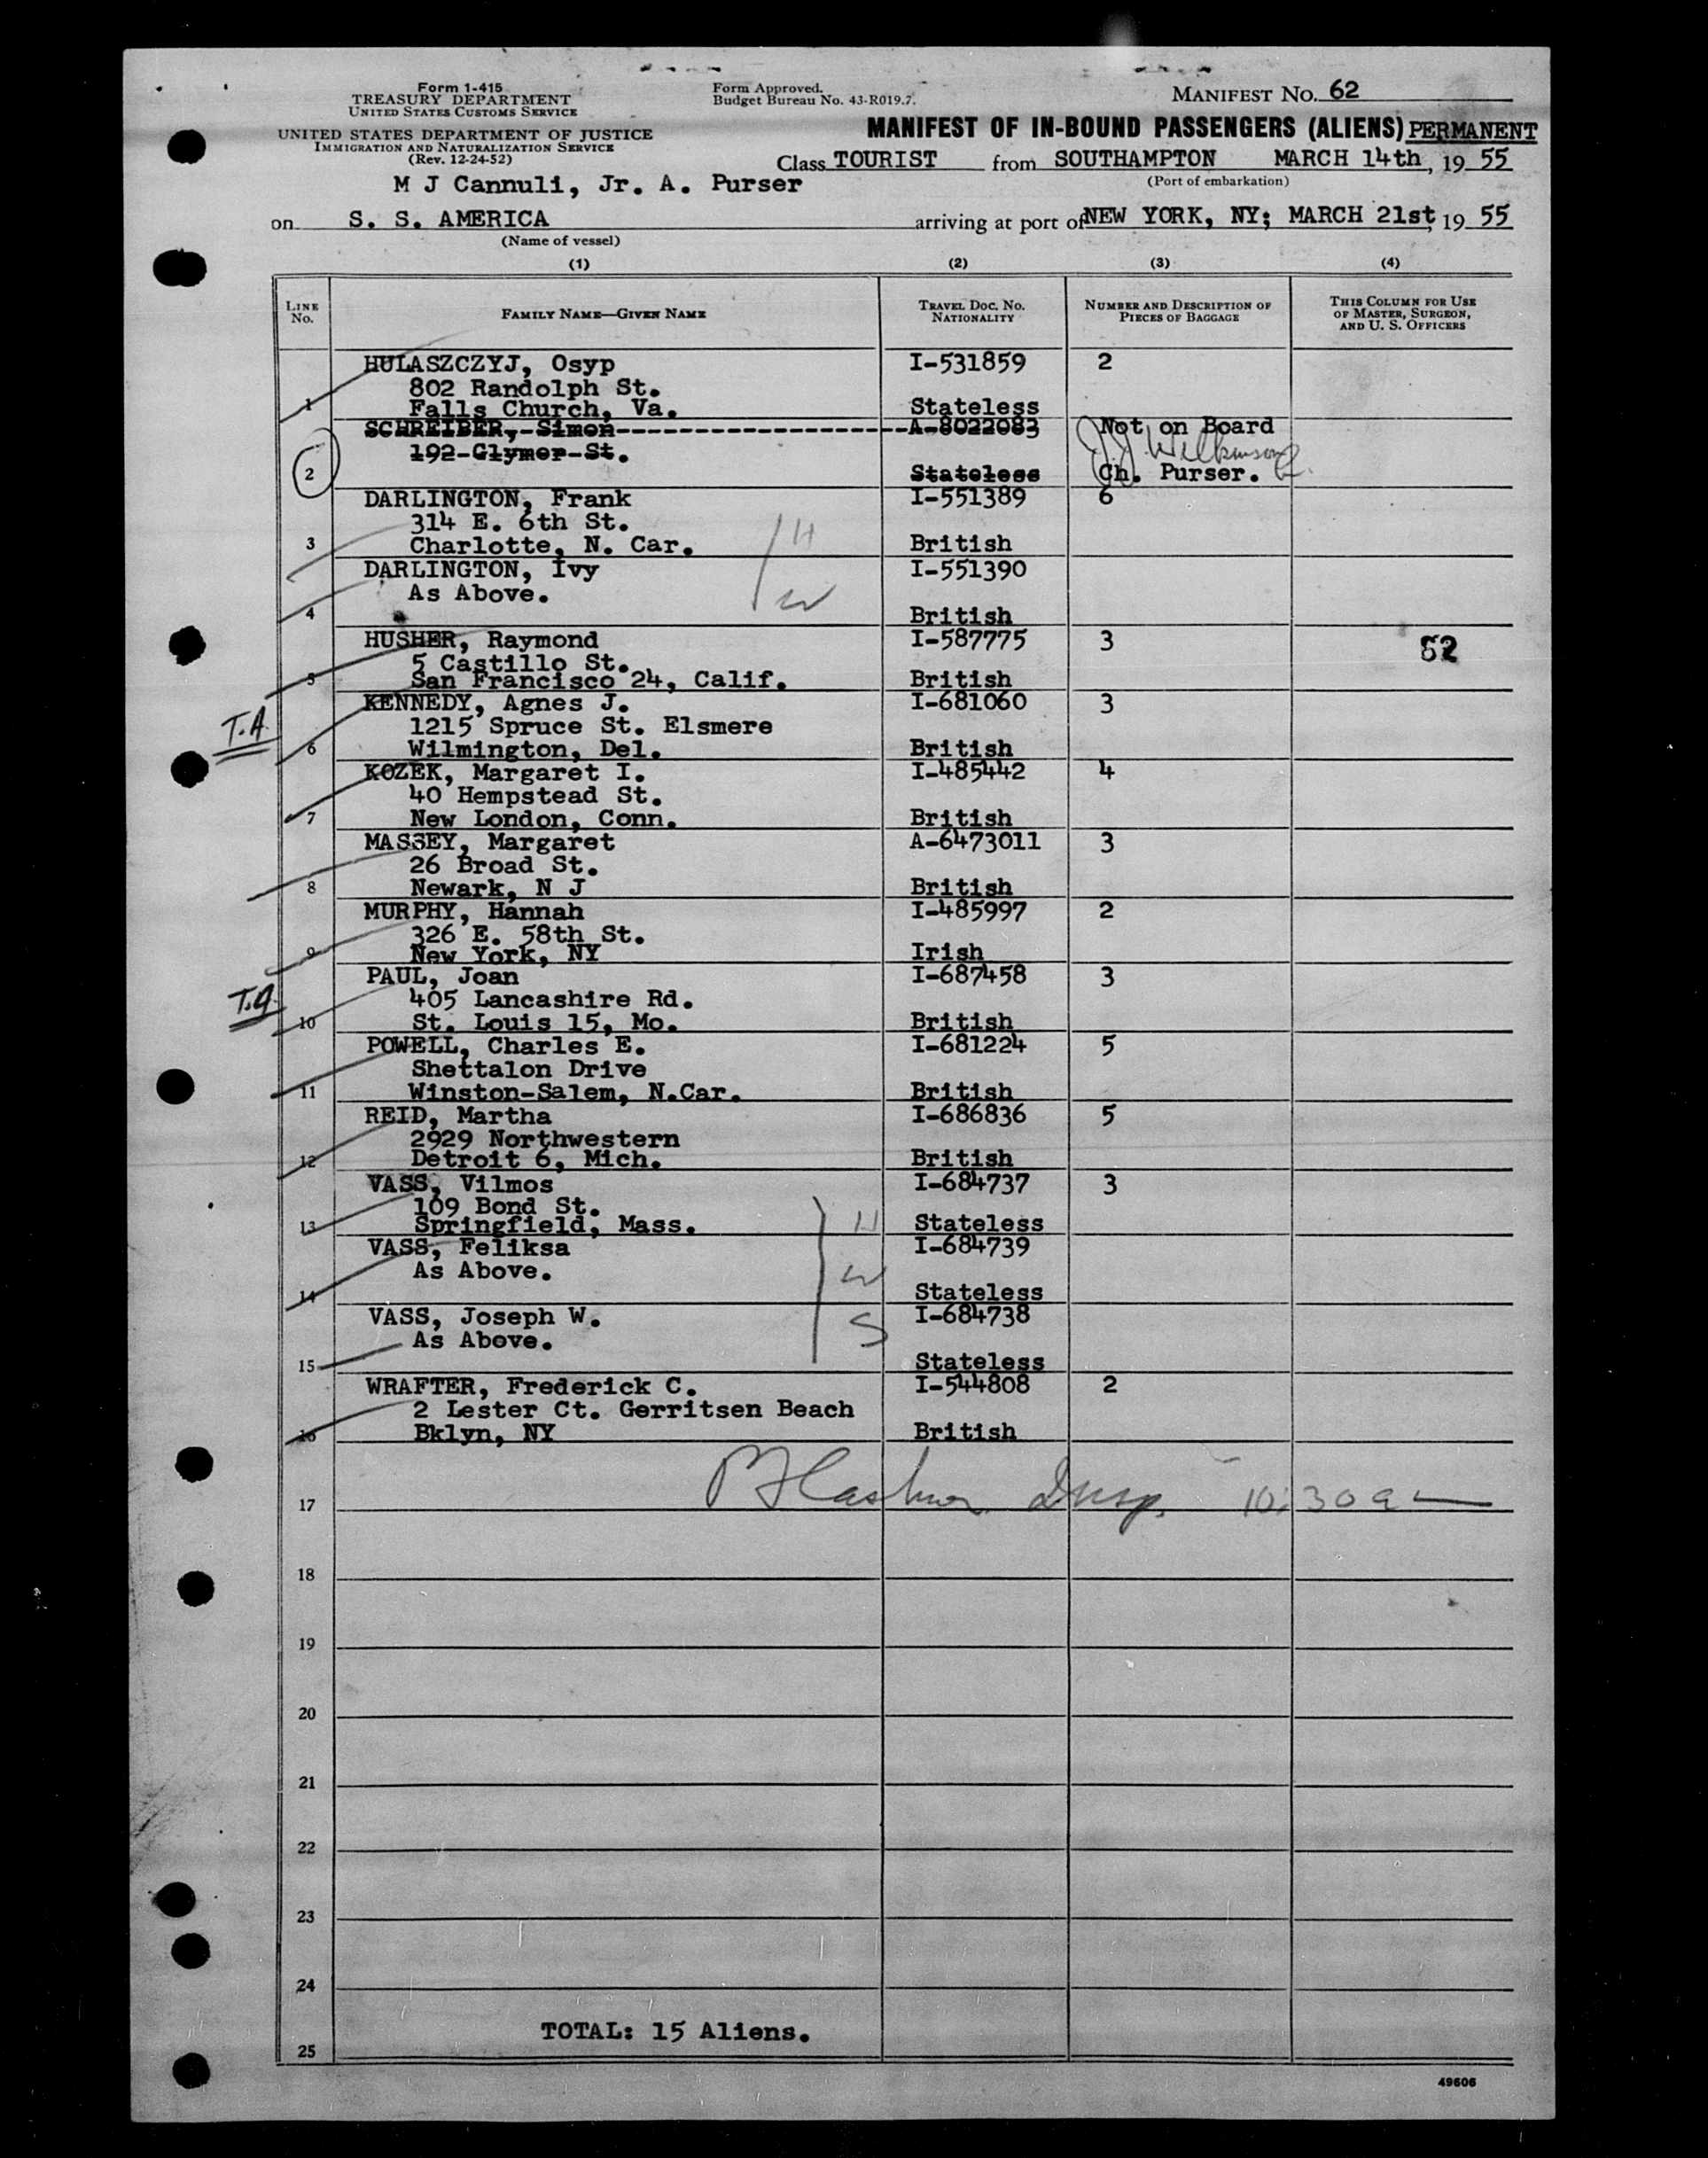 Form 1-415
TREASURY DEPARTMENT
UNITED STATES CUSTOMS SERVICE
UNITED STATES DEPARTMENT OF JUSTICE
IMMIGRATION AND NATURALIZATION SERVICE
(Rev. 12-24-52)
Form Approved.
Budget Bureau No. 43-R019.7.
MANIFEST NO. 62
MANIFEST OF IN-BOUND PASSENGERS (ALIENS) PERMANENT
Class TOURIST from SOUTHAMPTON MARCH 14th, 19 55
(Port of embarkation)
M J Cannuli, Jr. A. Purser
on S. S. AMERICA arriving at port of NEW YORK, NY; MARCH 21st, 19 55
(Name of vessel)
(1) (2) (3) (4)
LINE No. FAMILY NAME—GIVEN NAME TRAVEL DOC. NO. NATIONALITY NUMBER AND DESCRIPTION OF PIECES OF BAGGAGE THIS COLUMN FOR USE OF MASTER, SURGEON, AND U. S. OFFICERS
HULASZCZYJ, Osyp I-531859 2
802 Randolph St.
1 Falls Church, Va. Stateless
SCHREIBER,-Simon--------------------A-8022083 Not on Board
192-Clymer-St. J.J. Wilkinson
2 Stateless Ch. Purser.
DARLINGTON, Frank I-551389 6
314 E. 6th St. H
3 Charlotte, N. Car. British
DARLINGTON, Ivy I-551390
As Above. W
4 British
HUSHER, Raymond I-587775 3 62
5 Castillo St.
5 San Francisco 24, Calif. British
KENNEDY, Agnes J. I-681060 3
T.A. 1215 Spruce St. Elsmere
6 Wilmington, Del. British
KOZEK, Margaret I. I-485442 4
40 Hempstead St.
7 New London, Conn. British
MASSEY, Margaret A-6473011 3
26 Broad St.
8 Newark, N J British
MURPHY, Hannah I-485997 2
326 E. 58th St.
9 New York, NY Irish
PAUL, Joan I-687458 3
T.A. 405 Lancashire Rd.
10 St. Louis 15, Mo. British
POWELL, Charles E. I-681224 5
Shettalon Drive
11 Winston-Salem, N.Car. British
REID, Martha I-686836 5
2929 Northwestern
12 Detroit 6, Mich. British
VASS, Vilmos I-684737 3
109 Bond St.
13 Springfield, Mass. H Stateless
VASS, Feliksa I-684739
As Above. W
14 Stateless
VASS, Joseph W. I-684738
As Above. S
15 Stateless
WRAFTER, Frederick C. I-544808 2
2 Lester Ct. Gerritsen Beach
16 Bklyn, NY British
17 Insp. 10:30 a
18
19
20
21
22
23
24
TOTAL: 15 Aliens.
25
49606